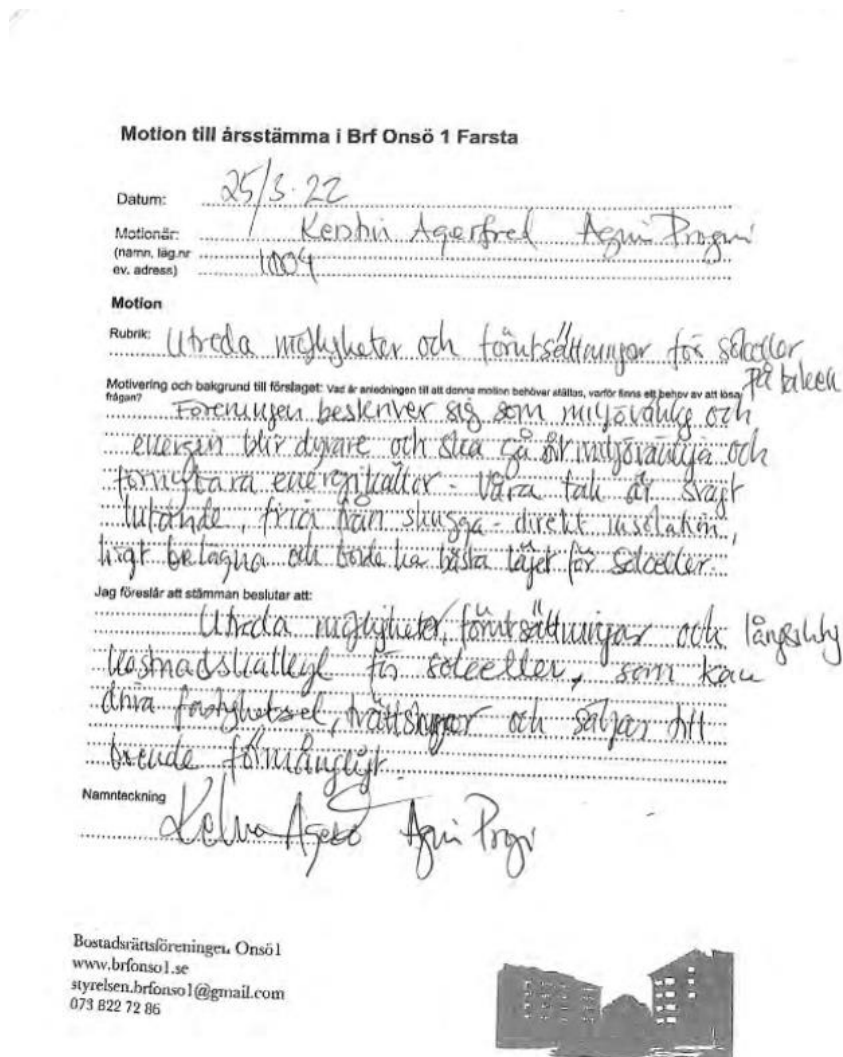 Motion till årsstämma i Brf Onsö 1 Farsta
Datum: 25/3-22
Motionär: Kerstin Agerfred Agni
(namn, läg.nr 1004
ev. adress)
Motion
Rubrik: Utreda möjligheter och förutsättningar för solceller
på taken
Motivering och bakgrund till förslaget: Vad är anledningen till att denna motion behöver ställas, varför finns ett behov av att lösa
frågan?
Föreningen beskriver sig som miljövänlig och
energin blir dyrare och ska gå åt miljövänliga och
energikällor - Våra tak är svagt
lutande, fria från skugga - direkt insolation,
högt belägna och borde ha bästa läget för solceller.
Jag föreslår att stämman beslutar att:
Utreda möjligheter, förutsättningar och långsiktig
för solceller, som kan
driva fastighetsel, och säljas till
boende förmånligt.
Namnteckning
Bostadsrättsföreningen Onsö1
www.brfonso1.se
styrelsen.brfonso1@gmail.com
073 822 72 86